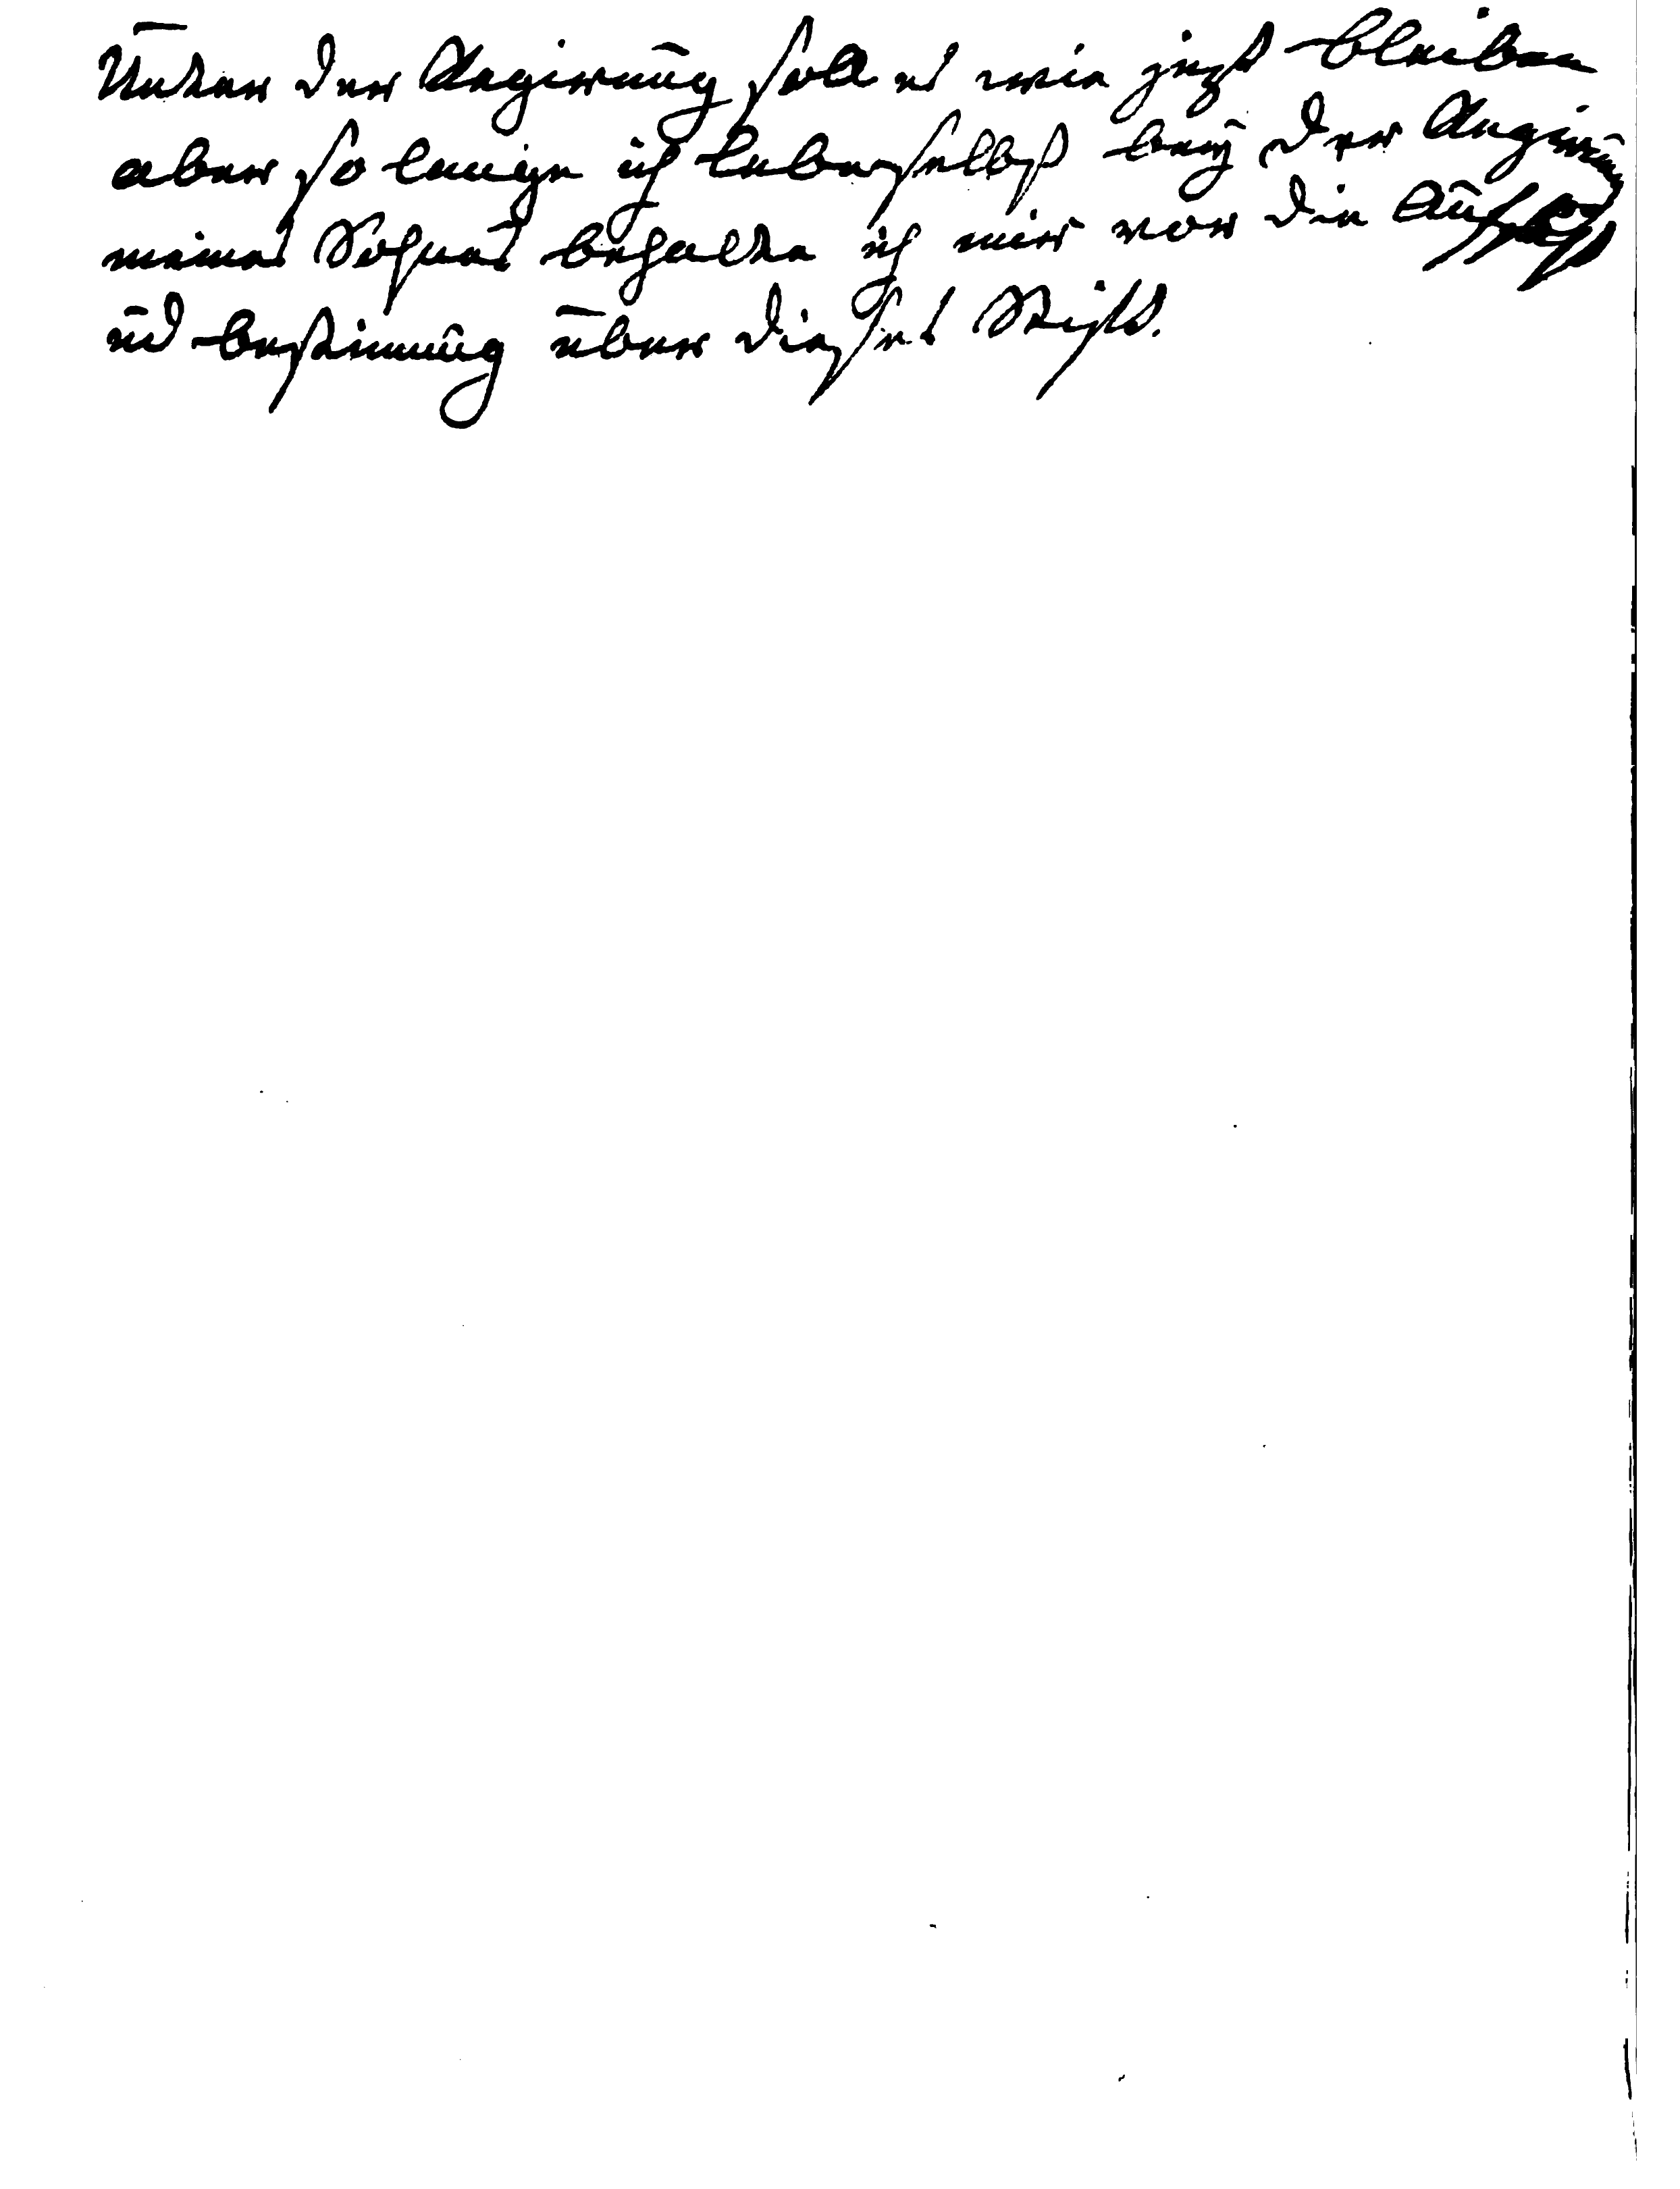 Unter der Regirung soll es wie jezt bleiben
aber so lange ich lebe, selbst bey der Regirung
meines Sohnes behalte ich mir vor die Aufsicht
und bestimung über dieses Stift.